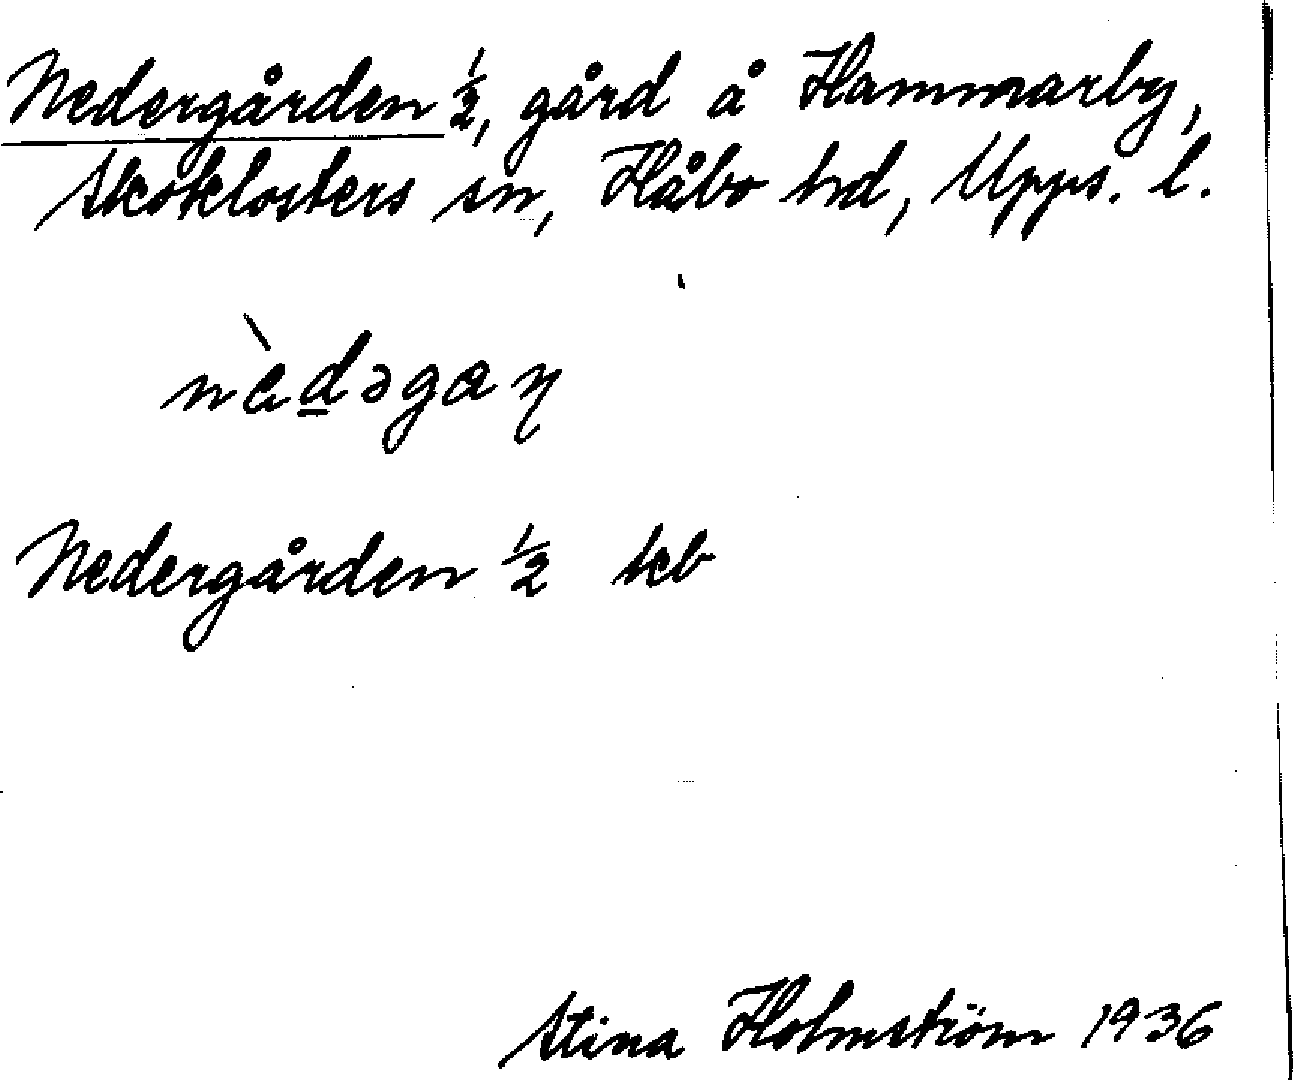 Nedergården ½, gård å Hammarby,
Skoklosters sn, Håbo hd, Upps. l.
Nedergården ½ kb
Stina Holmström 1936